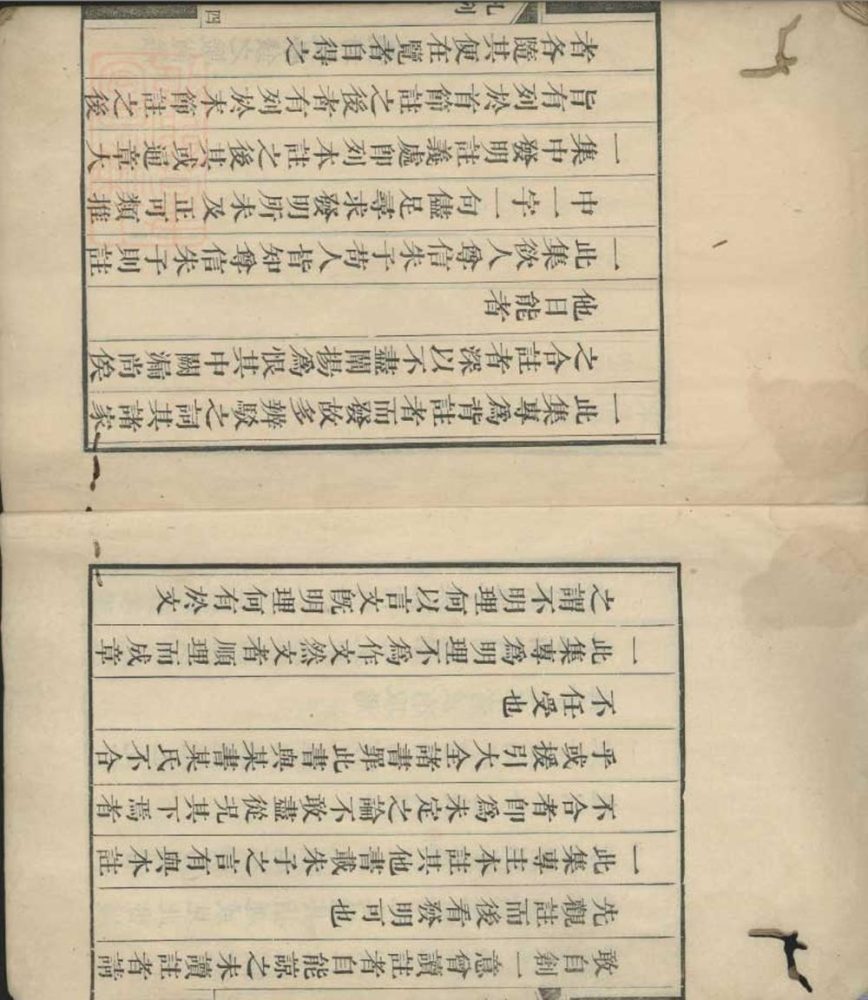 敢自創一意會讀註者自能諒之未讀註者請
先觀註而後看發明可也
一此集專主本註其他書載朱子之言有與本註
不合者卽爲未定之論不敢盡從況其下焉者
乎或援引大全諸書罪此書與某書某氏不合
不任受也
一此集專爲明理不爲作文然文者順理而成章
之謂不明理何以言文旣明理何有於文
一此集專爲背註者而發故多辨駁之詞其諸家
之合註者深以不盡闡揚爲恨其中闕漏尚俟
他日能者
一此集欲人尊信朱子苟人皆知尊信朱子則註
中一字一句儘足尋求發明所未及正可類推
一集中發明註義處卽列本註之後其或通章大
旨有列於首節註之後者有列於末節註之後
者各隨其便在覽者自得之
凡例
四